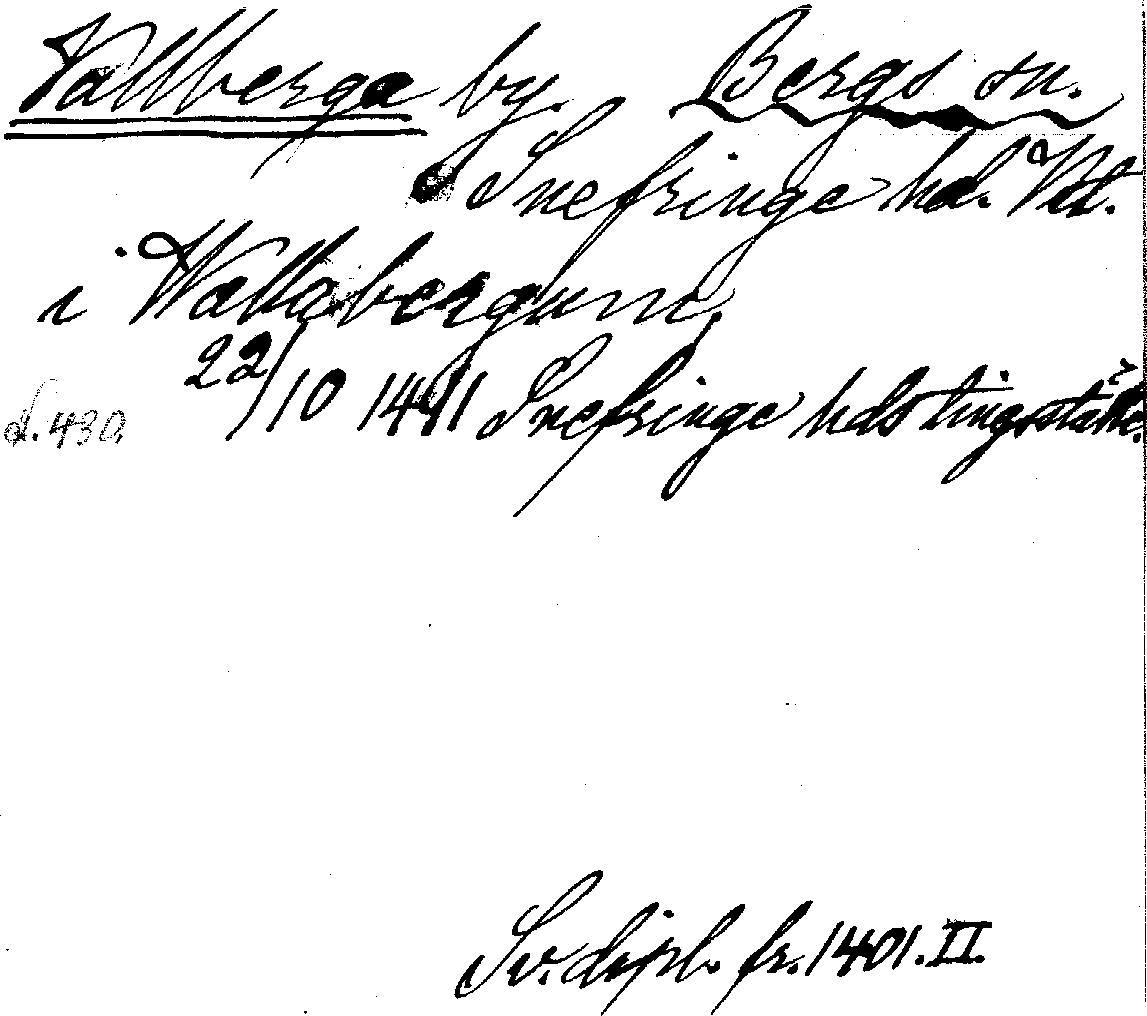 Vallberga by. Bergs sn.
Snefringe hd. Vstl.
i Wallabergum.
22/10 1411 Snefringe hds tingställe.
s. 430.
Sv. dipl. fr. 1401. II.